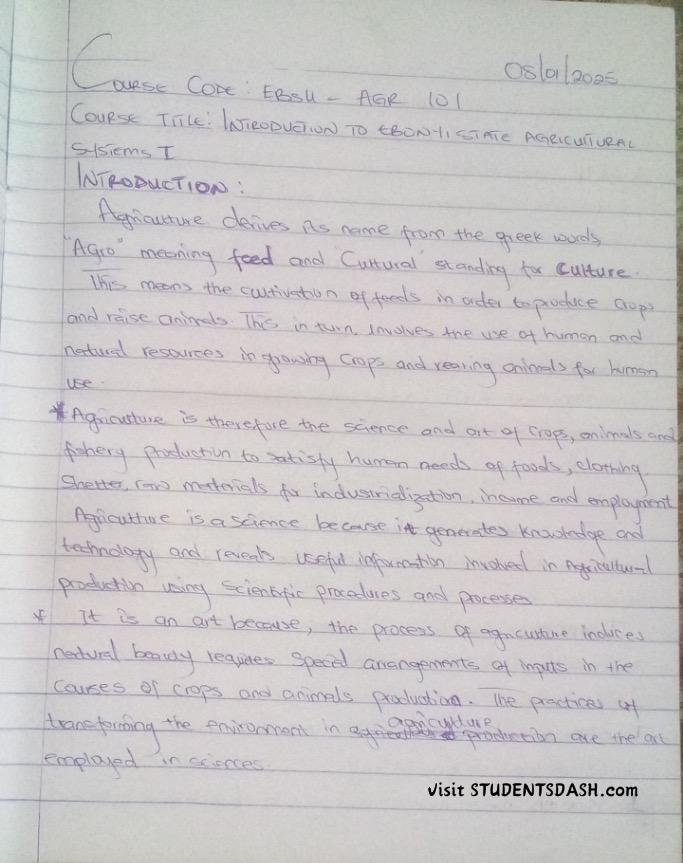 08/01/2025
COURSE CODE: EBSU - AGR 101
COURSE TITLE: INTRODUCTION TO EBONYI STATE AGRICULTURAL
SYSTEMS I
INTRODUCTION:
Agriculture derives its name from the greek words
"Agro" meaning feed and "Cultural" standing for culture.
This means the cultivation of feeds in order to produce crops
and raise animals. This in turn, involves the use of human and
natural resources in growing crops and rearing animals for human
use.
* Agriculture is therefore the science and art of crops, animals and
fishery production to satisfy human needs of foods, clothing,
Shelter, raw materials for industrialization, income and employment
Agriculture is a science because it generates knowledge and
technology and reveals useful information involved in Agricultural
production using scientific procedures and processes
* It is an art because, the process of agriculture induces
natural beauty requires special arrangements of inputs in the
courses of crops and animals production. The practices of
transforming the environment in agriculture production are the art
employed in sciences.
Visit STUDENTSDASH.com